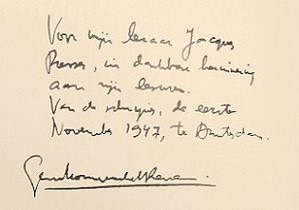 Voor mijn leraar Jacques
Presser, in dankbare herinnering
aan zijn lessen.
Van de schrijver, de eerste
November 1947, te Amsterdam.